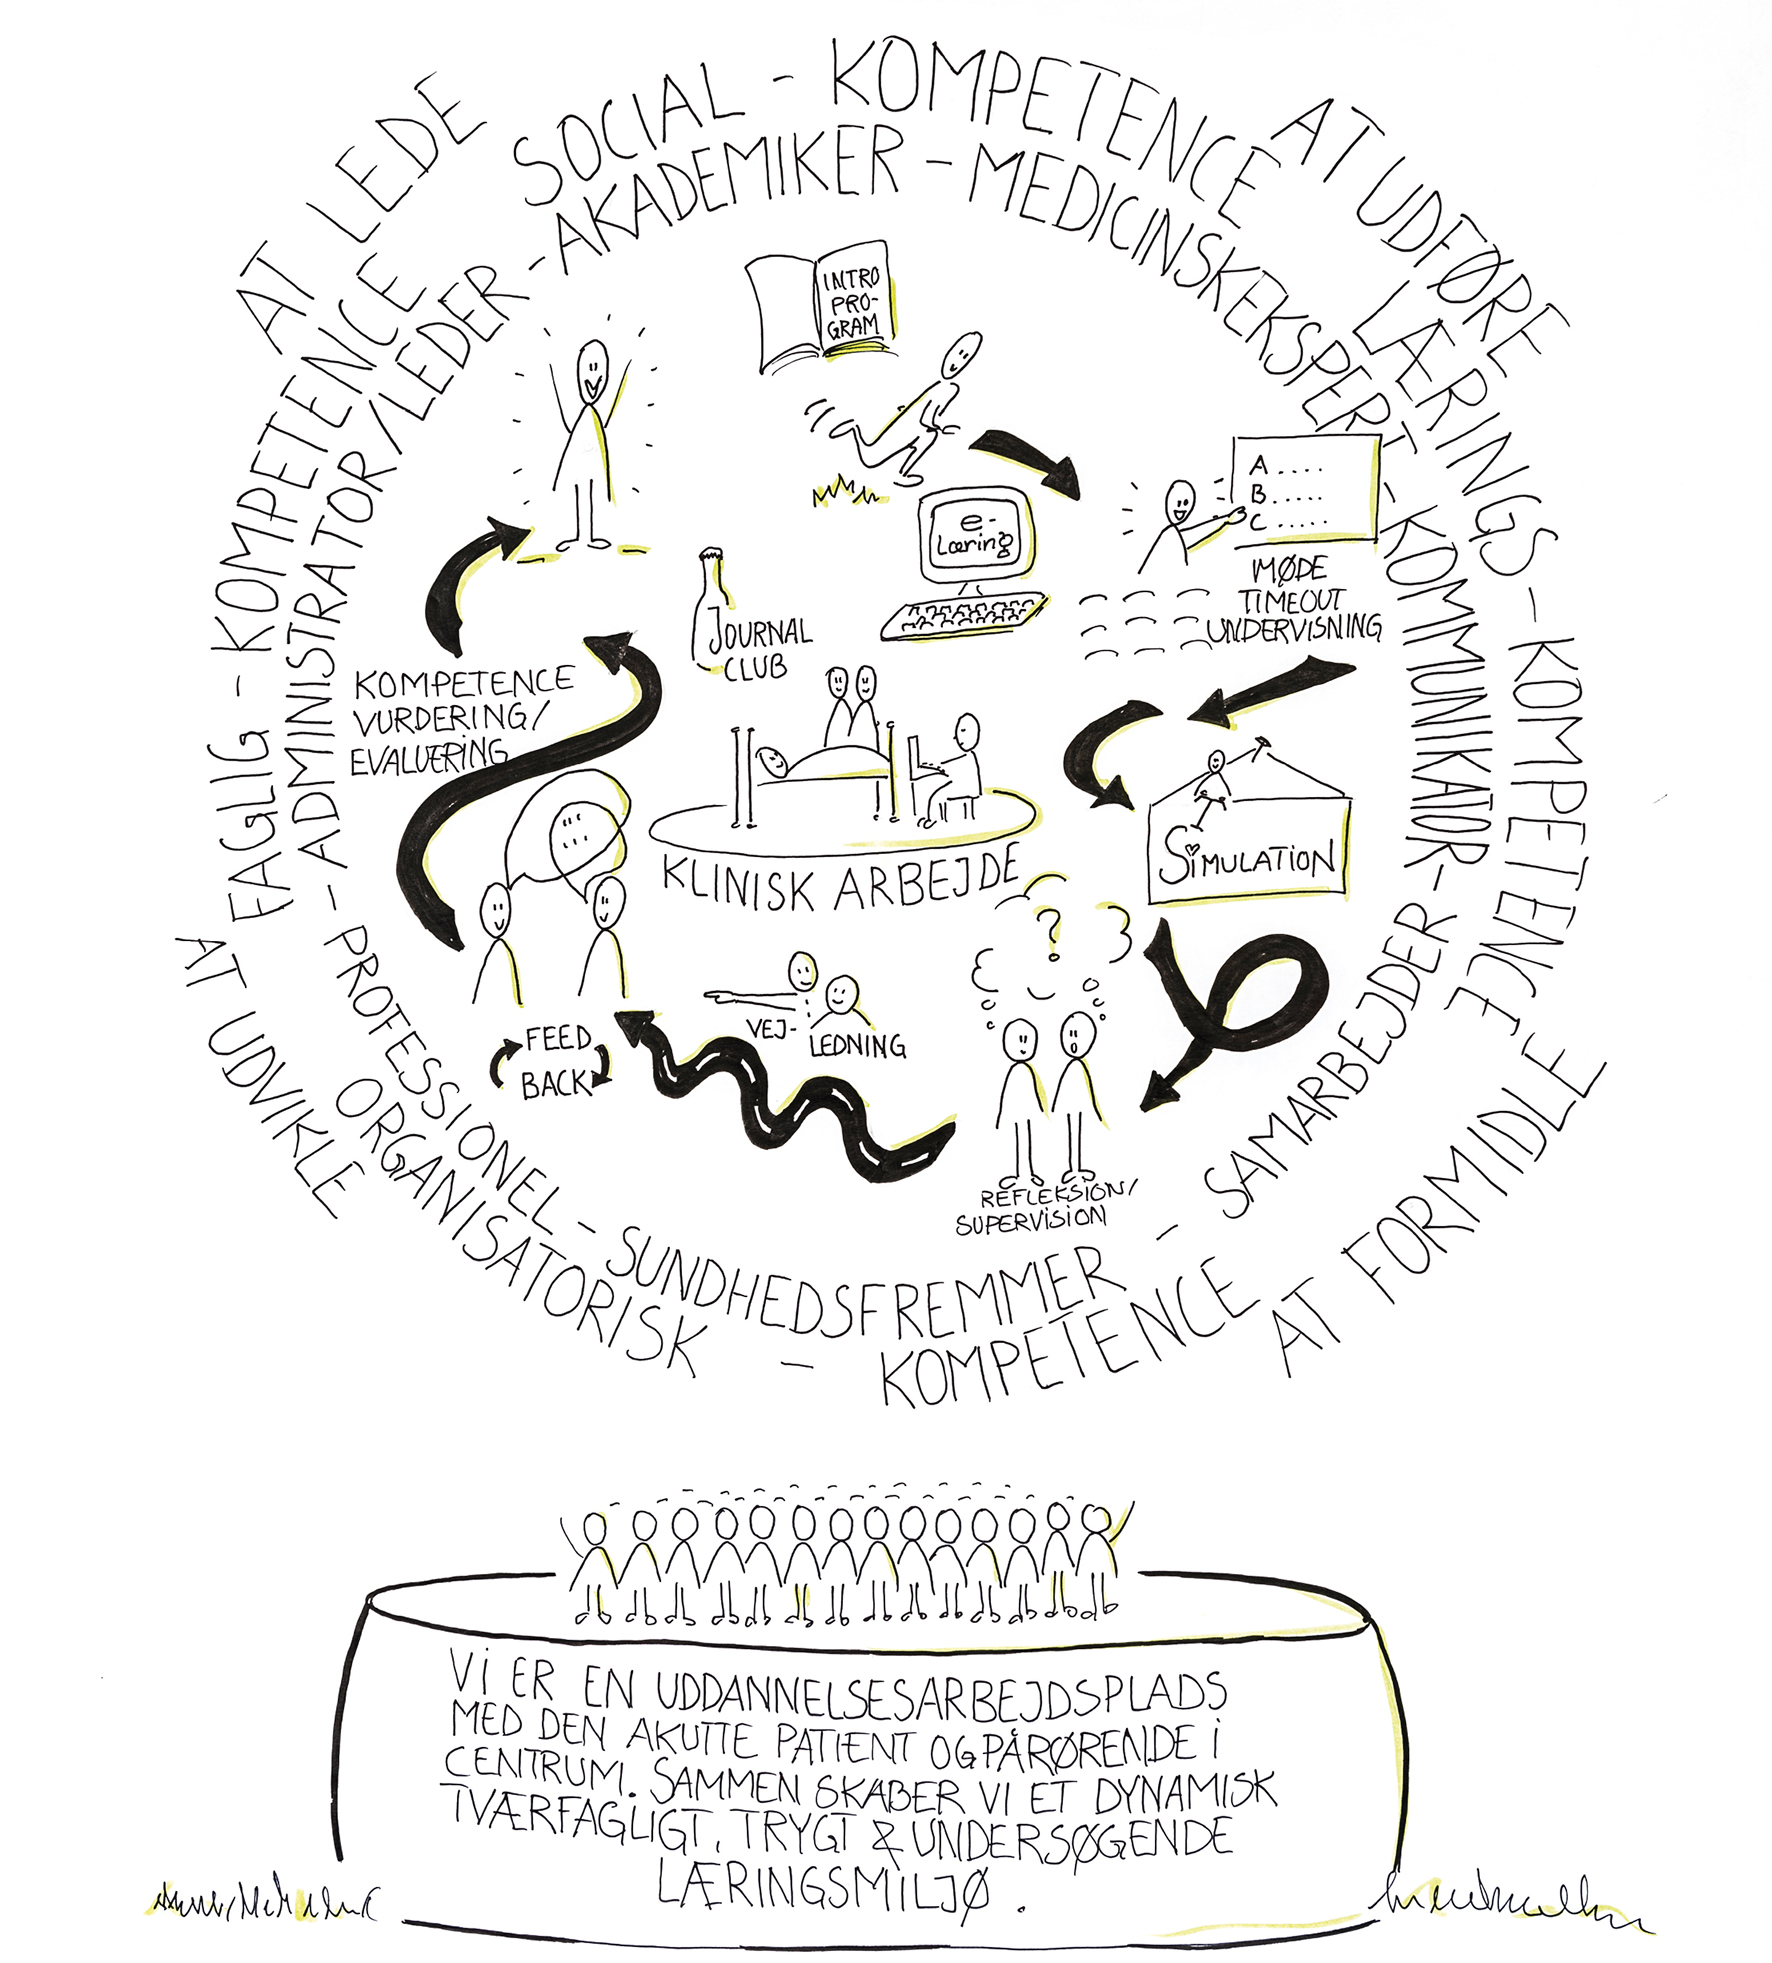 AT LEDE
AT UDFØRE
AT FORMIDLE
AT UDVIKLE
SOCIAL - KOMPETENCE
LÆRINGS - KOMPETENCE
ORGANISATORISK - KOMPETENCE
FAGLIG - KOMPETENCE
ADMINISTRATOR/LEDER - AKADEMIKER - MEDICINSKEKSPERT - KOMMUNIKATOR - SAMARBEJDER - SUNDHEDSFREMMER - PROFESSIONEL -
INTRO
PRO-
GRAM
e-
Læring
A.....
B.....
C.....
MØDE
TIMEOUT
UNDERVISNING
JOURNAL
CLUB
KOMPETENCE
VURDERING/
EVALUERING
KLINISK ARBEJDE
SIMULATION
?
VEJ-
LEDNING
FEED
BACK
REFLEKSION/
SUPERVISION
VI ER EN UDDANNELSESARBEJDSPLADS
MED DEN AKUTTE PATIENT OG PÅRØRENDE I
CENTRUM. SAMMEN SKABER VI ET DYNAMISK
TVÆRFAGLIGT, TRYGT & UNDERSØGENDE
LÆRINGSMILJØ.